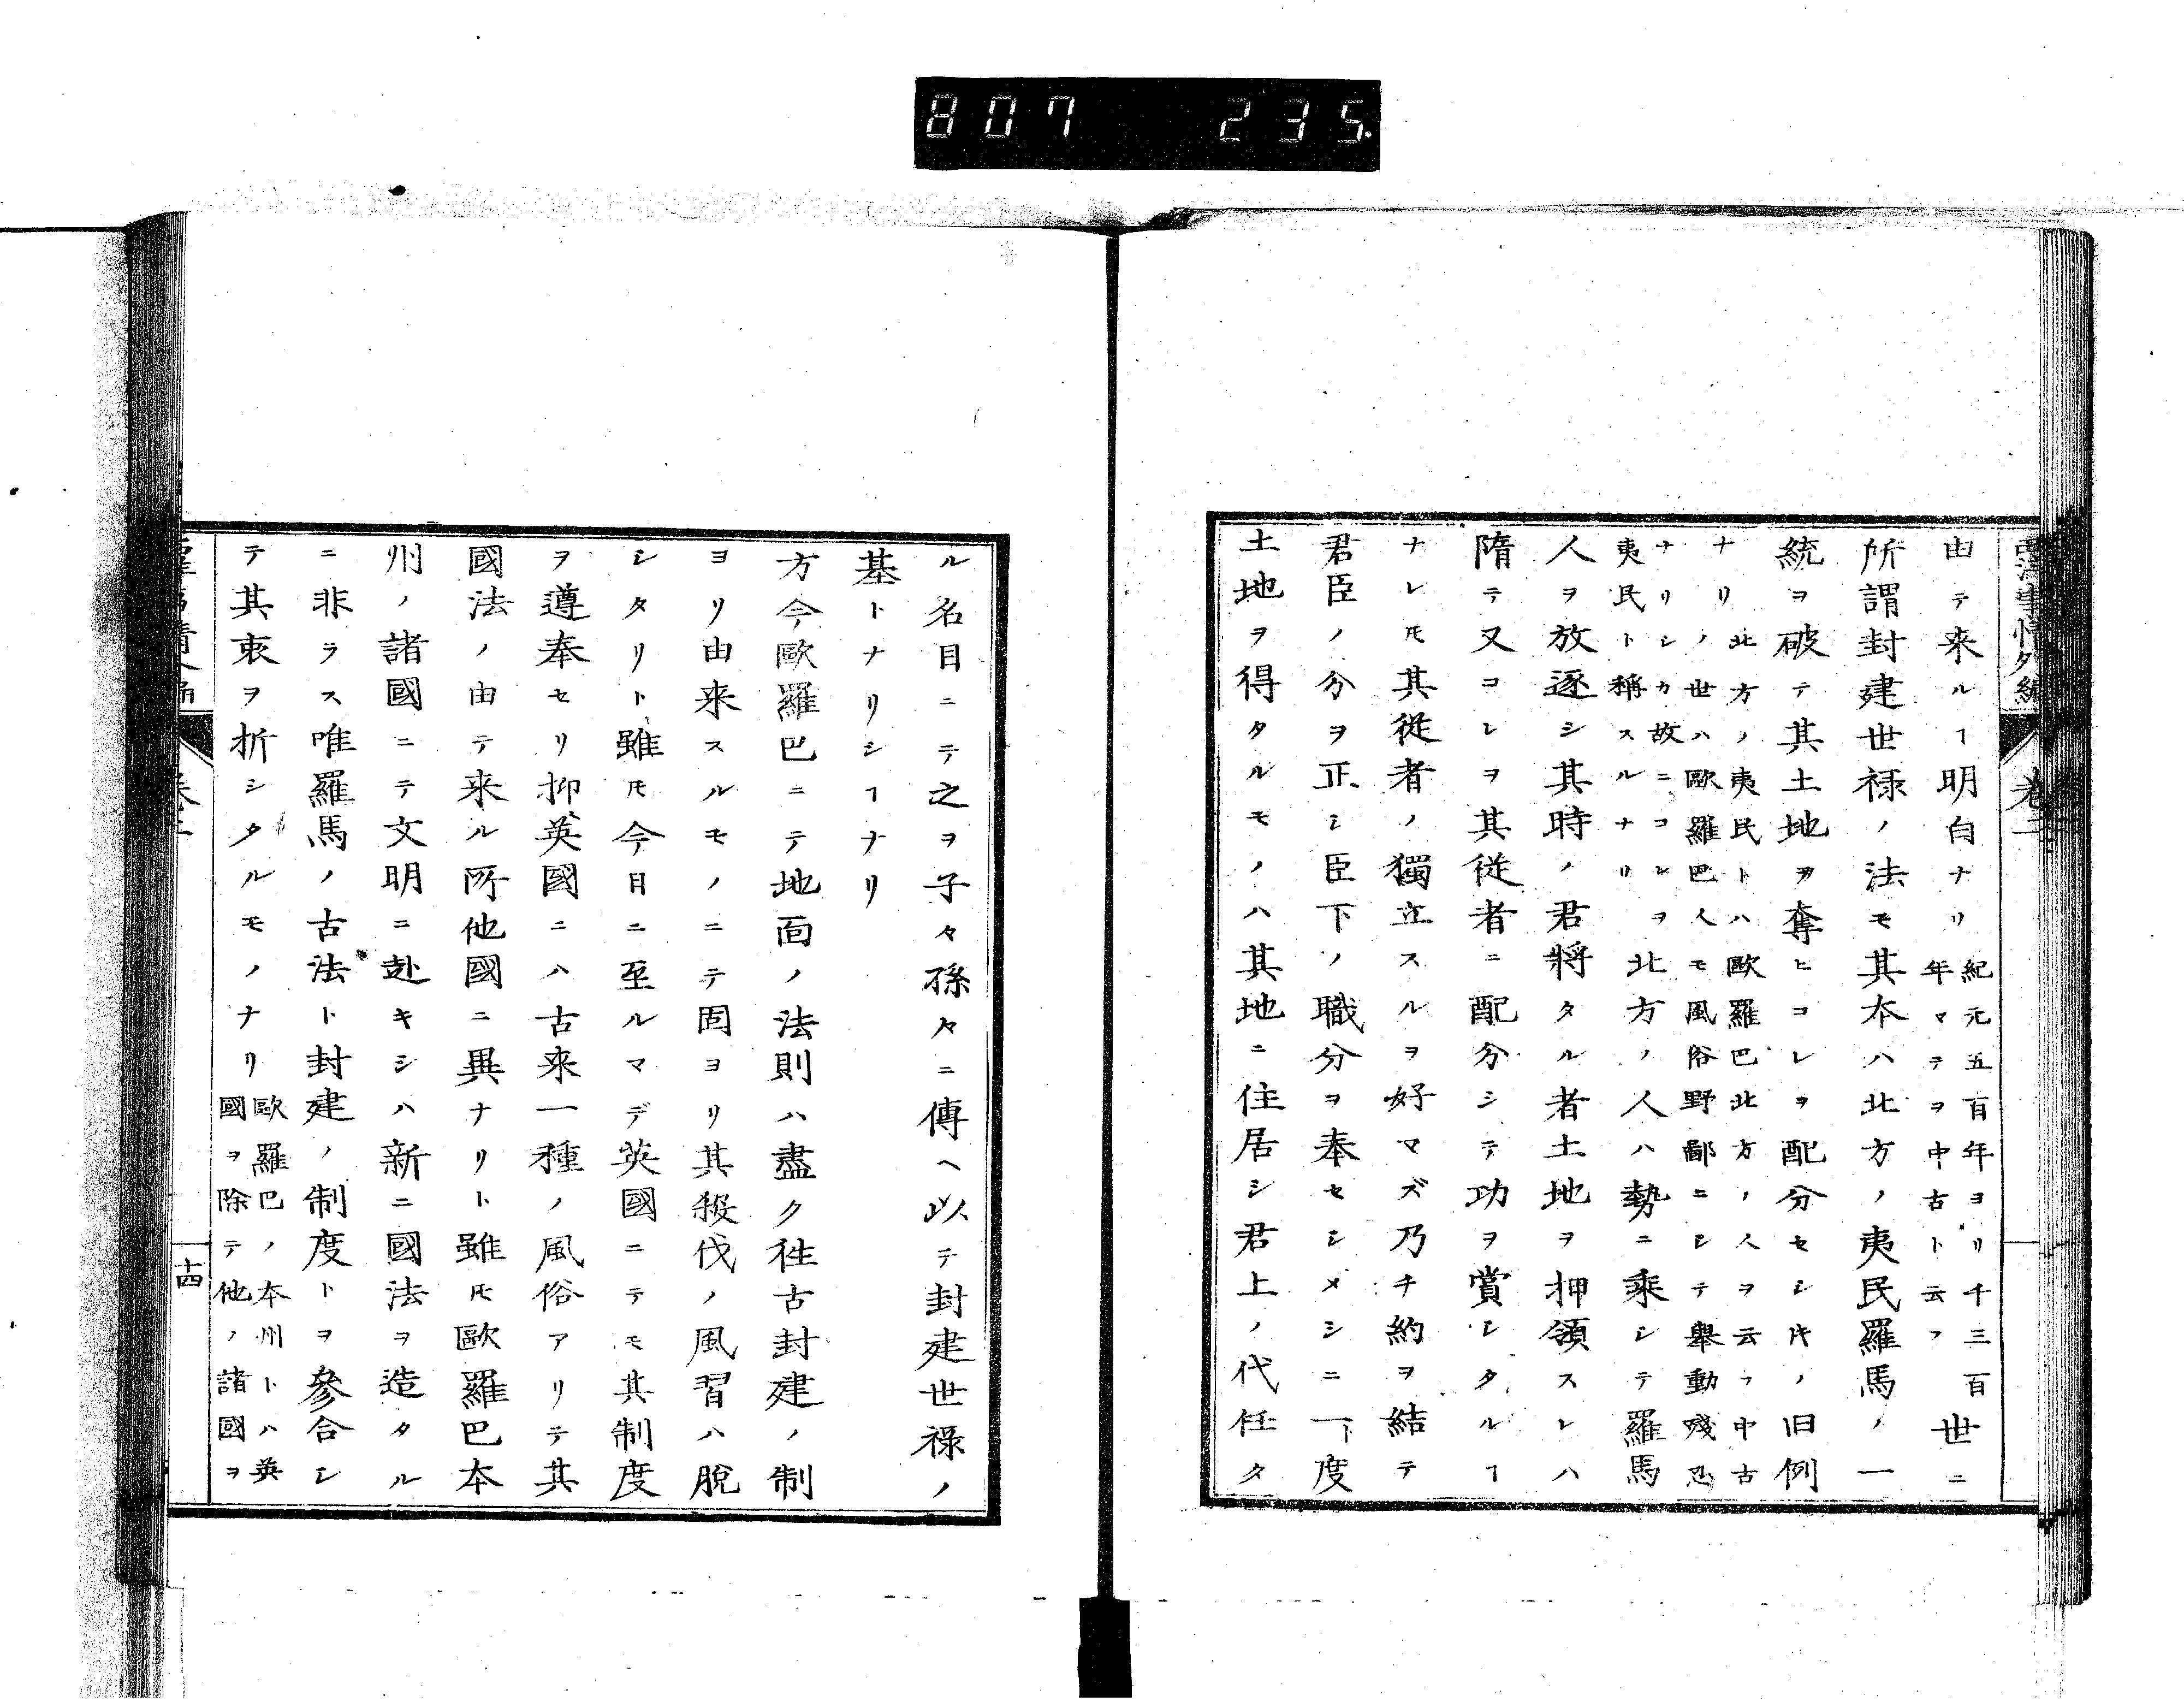 807 235.
西洋事情外編 卷二
由テ来ルヿ明白ナリ紀元五百年ヨリ千三百
年マテヲ中古ト云フ世ニ
所謂封建世禄ノ法モ其本ハ北方ノ夷民羅馬ノ一
統ヲ破テ其土地ヲ奪ヒコレヲ配分セシ𪜈ノ旧例
ナリ北方ノ夷民トハ歐羅巴北方ノ人ヲ云フ中古
ノ世ハ歐羅巴人モ風俗野鄙ニシテ舉動殘忍
ナリシカ故ニコレヲ
夷民ト稱スルナリ北方ノ人ハ勢ニ乘シテ羅馬
人ヲ放逐シ其時ノ君將タル者土地ヲ押領スレハ
隋テ又コレヲ其従者ニ配分シテ功ヲ賞シタルヿ
ナレ𪜈其從者ノ獨立スルヲ好マズ乃チ約ヲ結テ
君臣ノ分ヲ正シ臣下ノ職分ヲ奉セシメシニ一下度
土地ヲ得タルモノハ其地ニ住居シ君上ノ代任タ
ル名目ニテ之ヲ子々孫々ニ傳ヘ以テ封建世禄ノ
基トナリシヿナリ
方今歐羅巴ニテ地面ノ法則ハ盡ク徃古封建ノ制
ヨリ由来スルモノニテ固ヨリ其殺伐ノ風習ハ脫
シタリト雖𪜈今日ニ至ルマデ英國ニテモ其制度
ヲ遵奉セリ抑英國ニハ古来一種ノ風俗アリテ其
國法ノ由テ来ル所他國ニ異ナリト雖𪜈歐羅巴本
州ノ諸國ニテ文明ニ赴キシハ新ニ國法ヲ造タル
ニ非ラス唯羅馬ノ古法ト封建ノ制度トヲ參合シ
テ其衷ヲ折シタルモノナリ歐羅巴ノ本州トハ英
國ヲ除テ他ノ諸國ヲ
十四